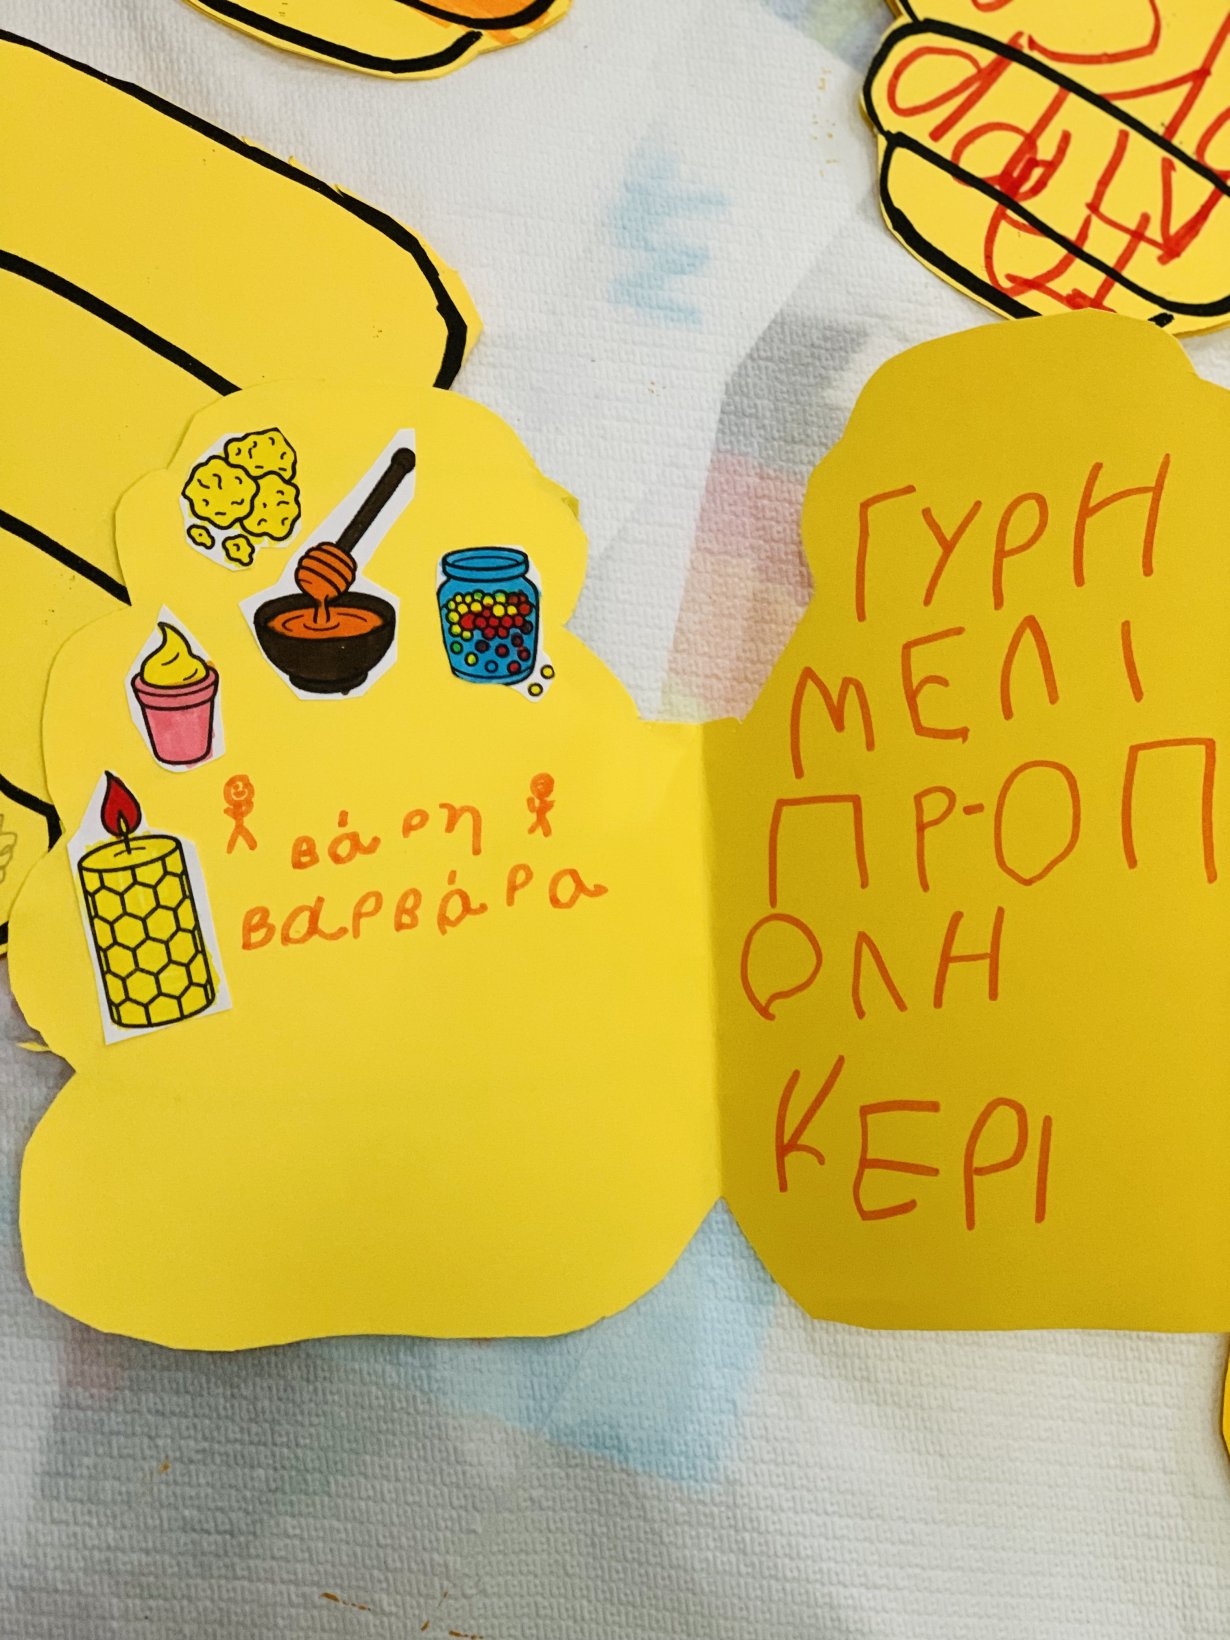 βάρη
βαρβάρα
ΓΥΡΗ
ΜΕΛΙ
ΠΡ-ΟΠ
ΟΛΗ
ΚΕΡΙ